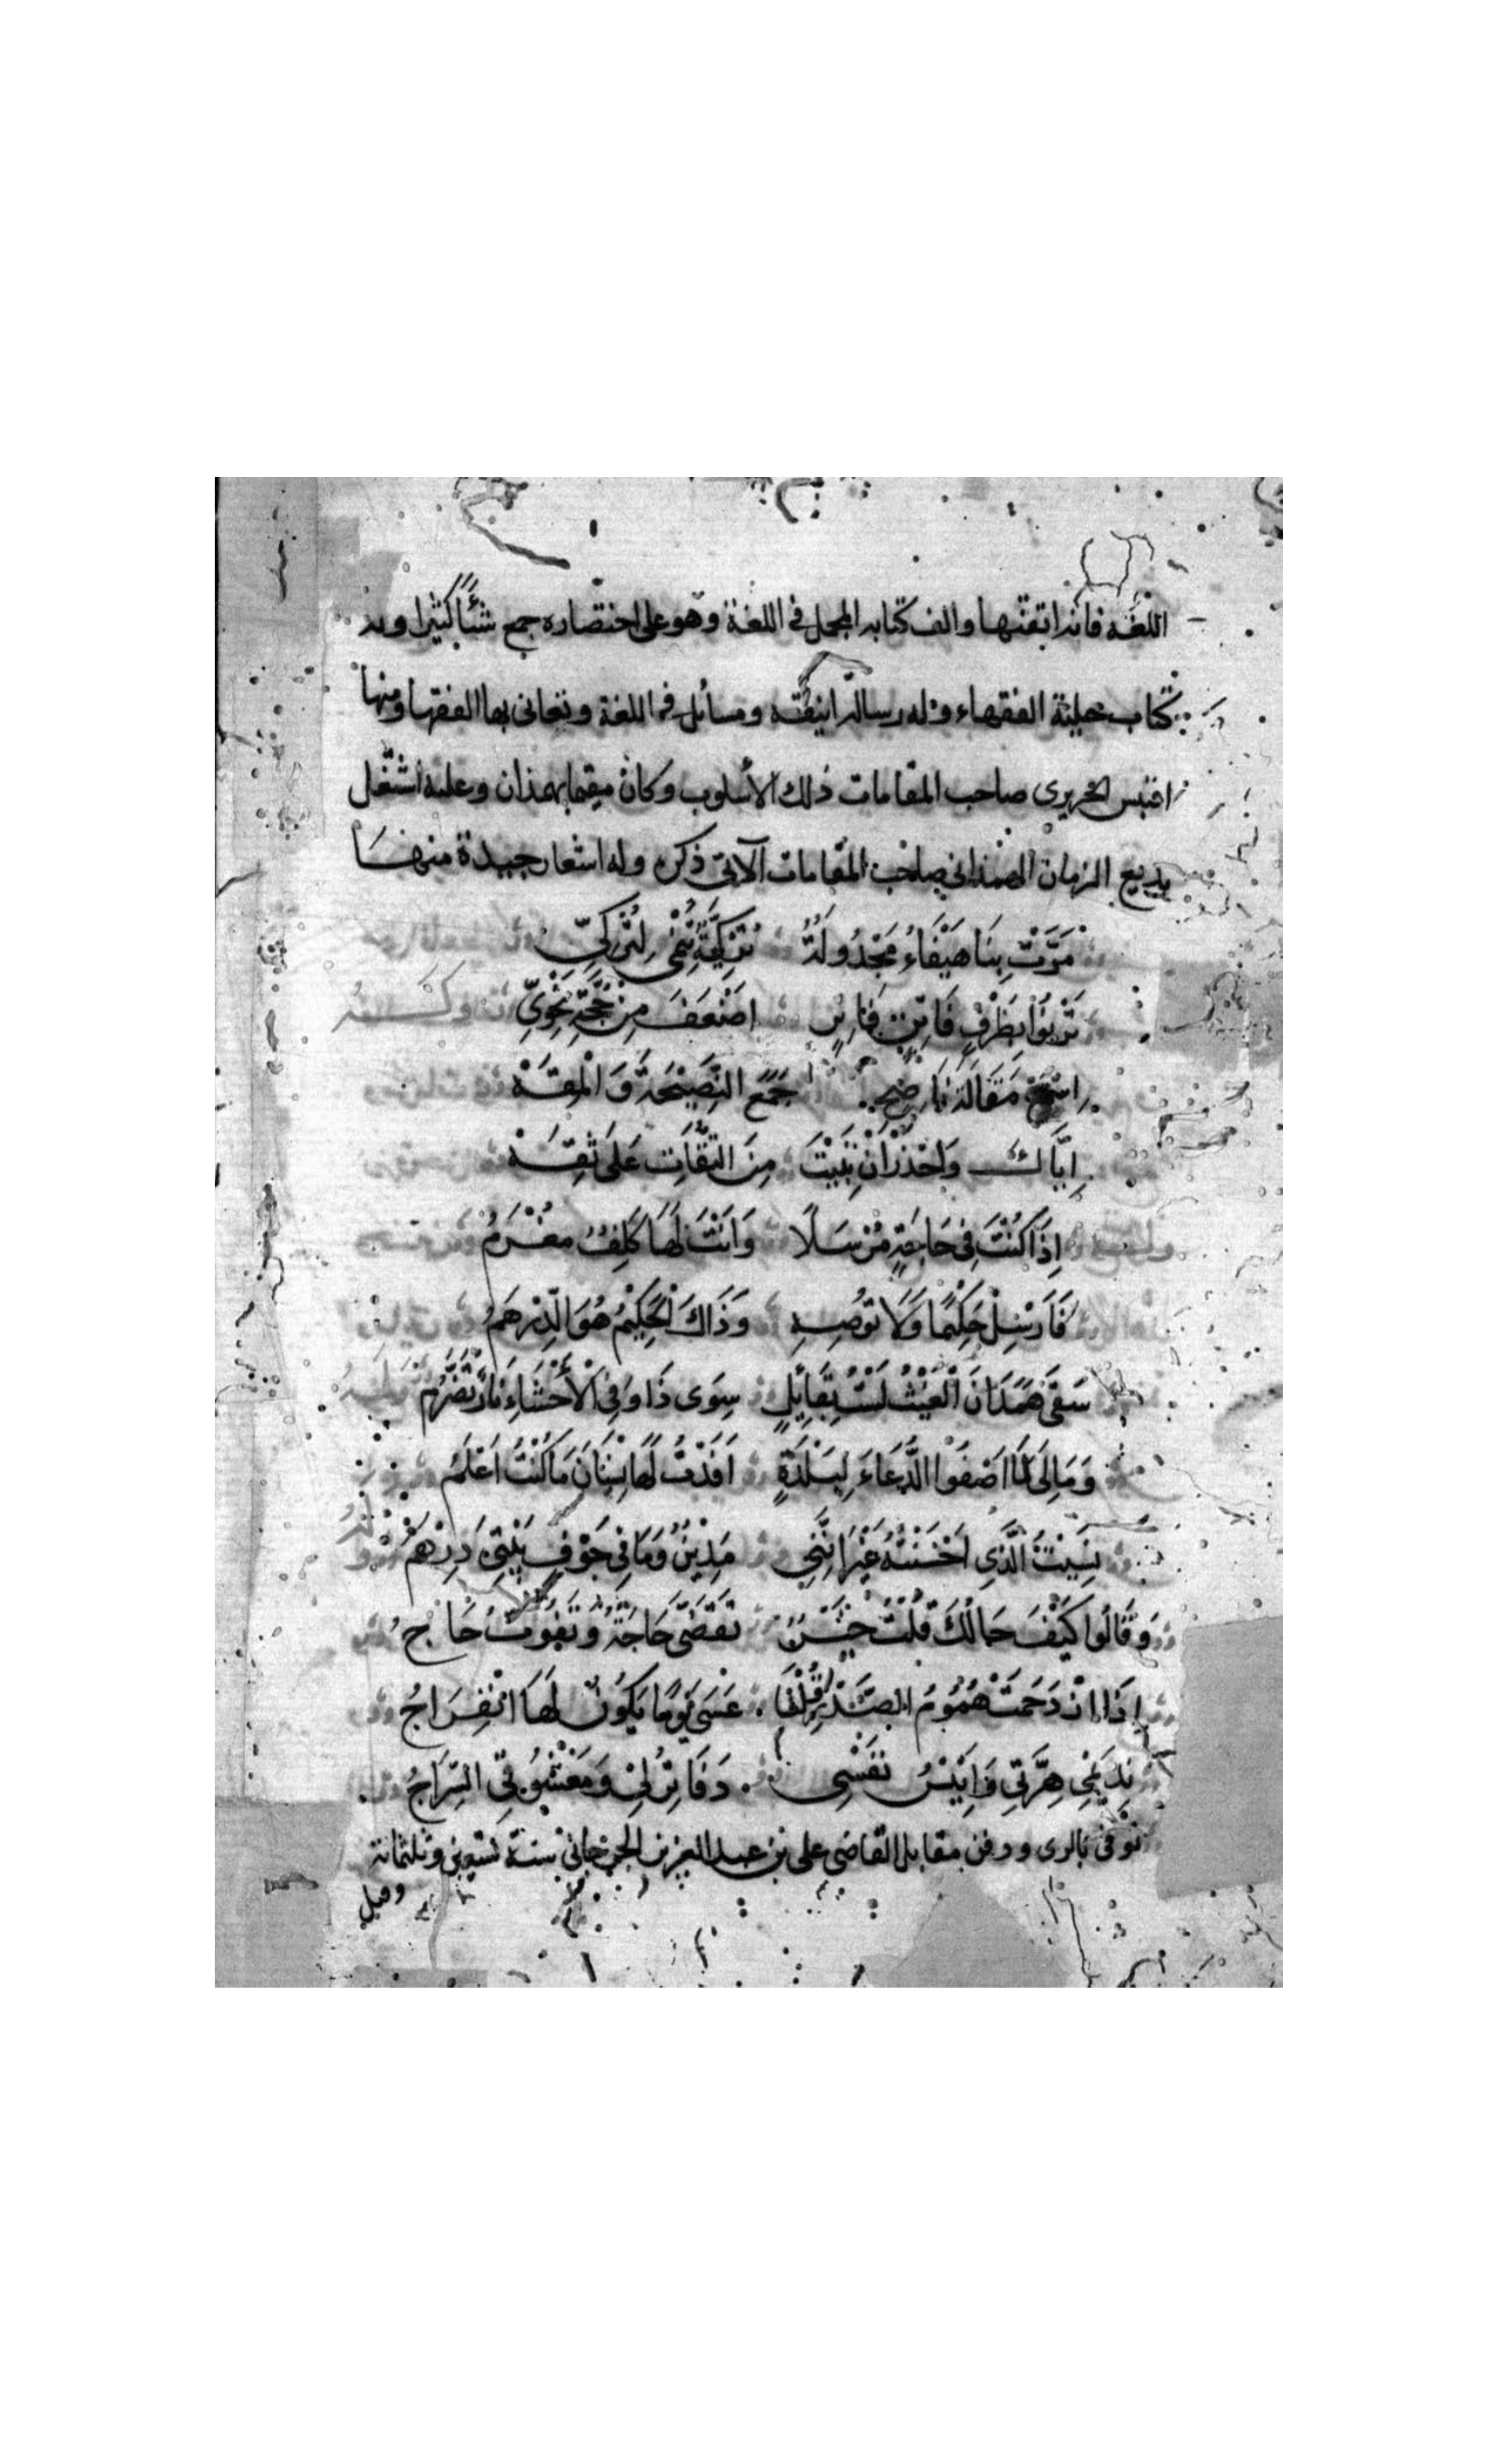 اللغة فانه اتقنها والف كتابه المجمل في اللغة وهو على اختصاره جمع شيئاً كثيرا وله
كتاب حلية الفقهاء وله رسالة انيقة ومسائل في اللغة وتعانى بها الفقها ومنها
اقتبس الحريرى صاحب المقامات ذلك الأسلوب وكان مقيما بهمذان وعليه اشتغل
بديع الزمان الهمذانى صاحب المقامات الآتى ذكره وله اشعار جيدة منها
مَرَّتْ بِنَا هَيْفَاءُ مَجْدُولَةٌ تُرْكِيَّةٌ تُنْمَى لِتُرْكِيِّ
تَرْنُوا بِطَرْفٍ فَاتِنٍ فَاتِرٍ اَضْعَفَ مِنْ حُجَّةِ نَحْوِيِّ
اِسْمَعْ مَقَالَةَ نَاصِحٍ جَمَعَ النَّصِيْحَةَ وَالْمِقَهْ
اِيَّاكَ وَاحْذَرْ اَنْ تَبِيْتَ مِنَ الثِّقَاتِ عَلَى ثِقَهْ
اِذَا كُنْتَ فِى حَاجَةٍ مُرْسَلًا وَاَنْتَ لَهَا كَلِفٌ مغْرَمُ
فَاَرْسِلْ حَكِيْمًا وَلَا تُوْصِهِ وَذَاكَ الْحَكِيْمُ هُوَ الدِّرْهَمُ
سَقَى هَمَدَانَ الْغَيْثُ لَسْتُ بِقَائِلٍ سِوَى ذَا وَفِى الْأَحْشَاءِ نَارٌ تَضَرَّمُ
وَمَا لِىَ لَا اَصْفُوا الدُّعَاءَ لِبَلْدَةٍ اَفَدْتُ لَهَا نِسْيَانَ مَا كُنْتُ اَعْلَمُ
نَسِيْتُ الَّذِى اَحْسَنْتُهُ غَيْرَ اَنَّنِى مَدِيْنٌ وَمَا فِى جَوْفِ بَيْتِىَ دِرْهَمُ
وَقَالُوا كَيْفَ حَالُكَ قُلْتُ خَيْرٌ تَقَضَّى حَاجَةٌ وَتَفُوْتُ حَاجُ
اِذَا ازْدَحَمَتْ هُمُوْمُ الصَّدْرِ قُلْنَا عَسَى يَوْمًا يَكُوْنُ لَهَا انْفِرَاجُ
نَدِيْمِى هِرَّتِى وَاَنِيْسُ نَفْسِى دَفَاتِرُ لِىْ وَمَعْشُوْقِى السِّرَاجُ
توفى بالرى ودفن مقابل القاضى على بن عبد العزيز الجرجانى سنة تسعين وثلثمائة
وقيل